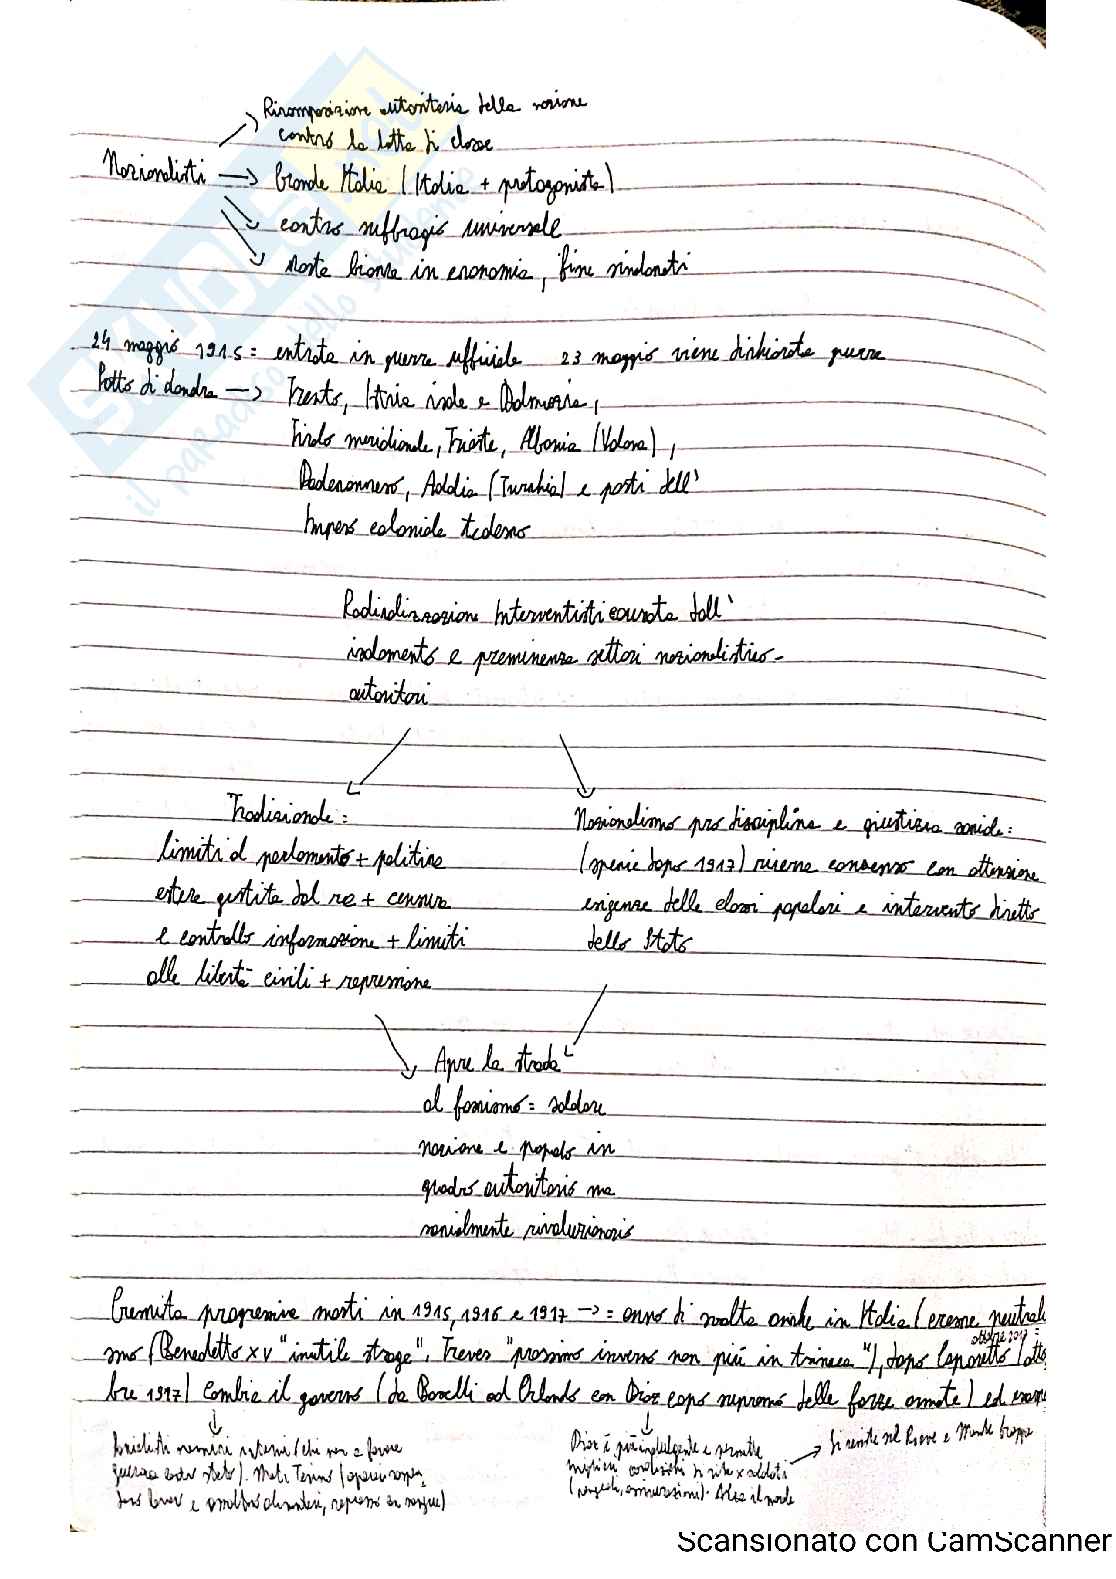 Ricomposizione autoritaria della nazione
contro la lotta di classe
Nazionalisti → Grande Italia (Italia + protagonista)
contro suffragio universale
Mano bianca in economia, fine sindacati
24 maggio 1915 = entrata in guerra ufficiale 23 maggio viene dichiarata guerra
Patto di Londra → Trento, Istria isole e Dalmazia,
Tirolo meridionale, Trieste, Albania (Valona),
Dodecanneso, Addia (Turchia) e parti dell'
Impero coloniale tedesco
Radicalizzazione Interventisti causata dall'
isolamento e preminenza settori nazionalistico-
autoritari
Tradizionale:
limiti al parlamento + politica
estera gestita dal re + censura
e controllo informazione + limiti
alle libertà civili + repressione
Nazionalismo pro disciplina e giustizia sociale:
(specie dopo 1917) ricerca consenso con attenzione
esigenze delle classi popolari e intervento diretto
dello Stato
Apre la strada
al fascismo = saldare
nazione e popolo in
quadro autoritario ma
socialmente rivoluzionario
Crescita progressiva morti in 1915, 1916 e 1917 → = anno di svolta anche in Italia (cresce neutrali
smo (Benedetto XV "inutile strage", Treves "prossimo inverno non più in trincea"), dopo Caporetto (otto
bre 1917) Cambia il governo (da Boselli ad Orlando con Diaz capo supremo delle forze armate) ed
Socialisti nemici interni (chi non a favore
guerra contro stato). Moti Torino (operai
Diaz è più indulgente e permette
migliori condizioni di vita x soldati
Alza il morale
Si resiste sul Piave e Monte Grappa
SKUOLA.net
il paradiso dello studente
Scansionato con CamScanner